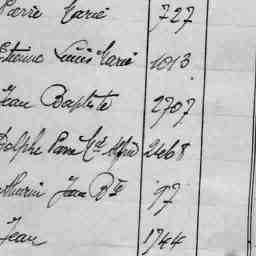 Pierre Marie 727
Etienne Louis Marie 1013
Jean Baptiste 2707
Adolphe Pierre Md Alfred 2468
Mathurin Jean Bte 97
Jean 1944